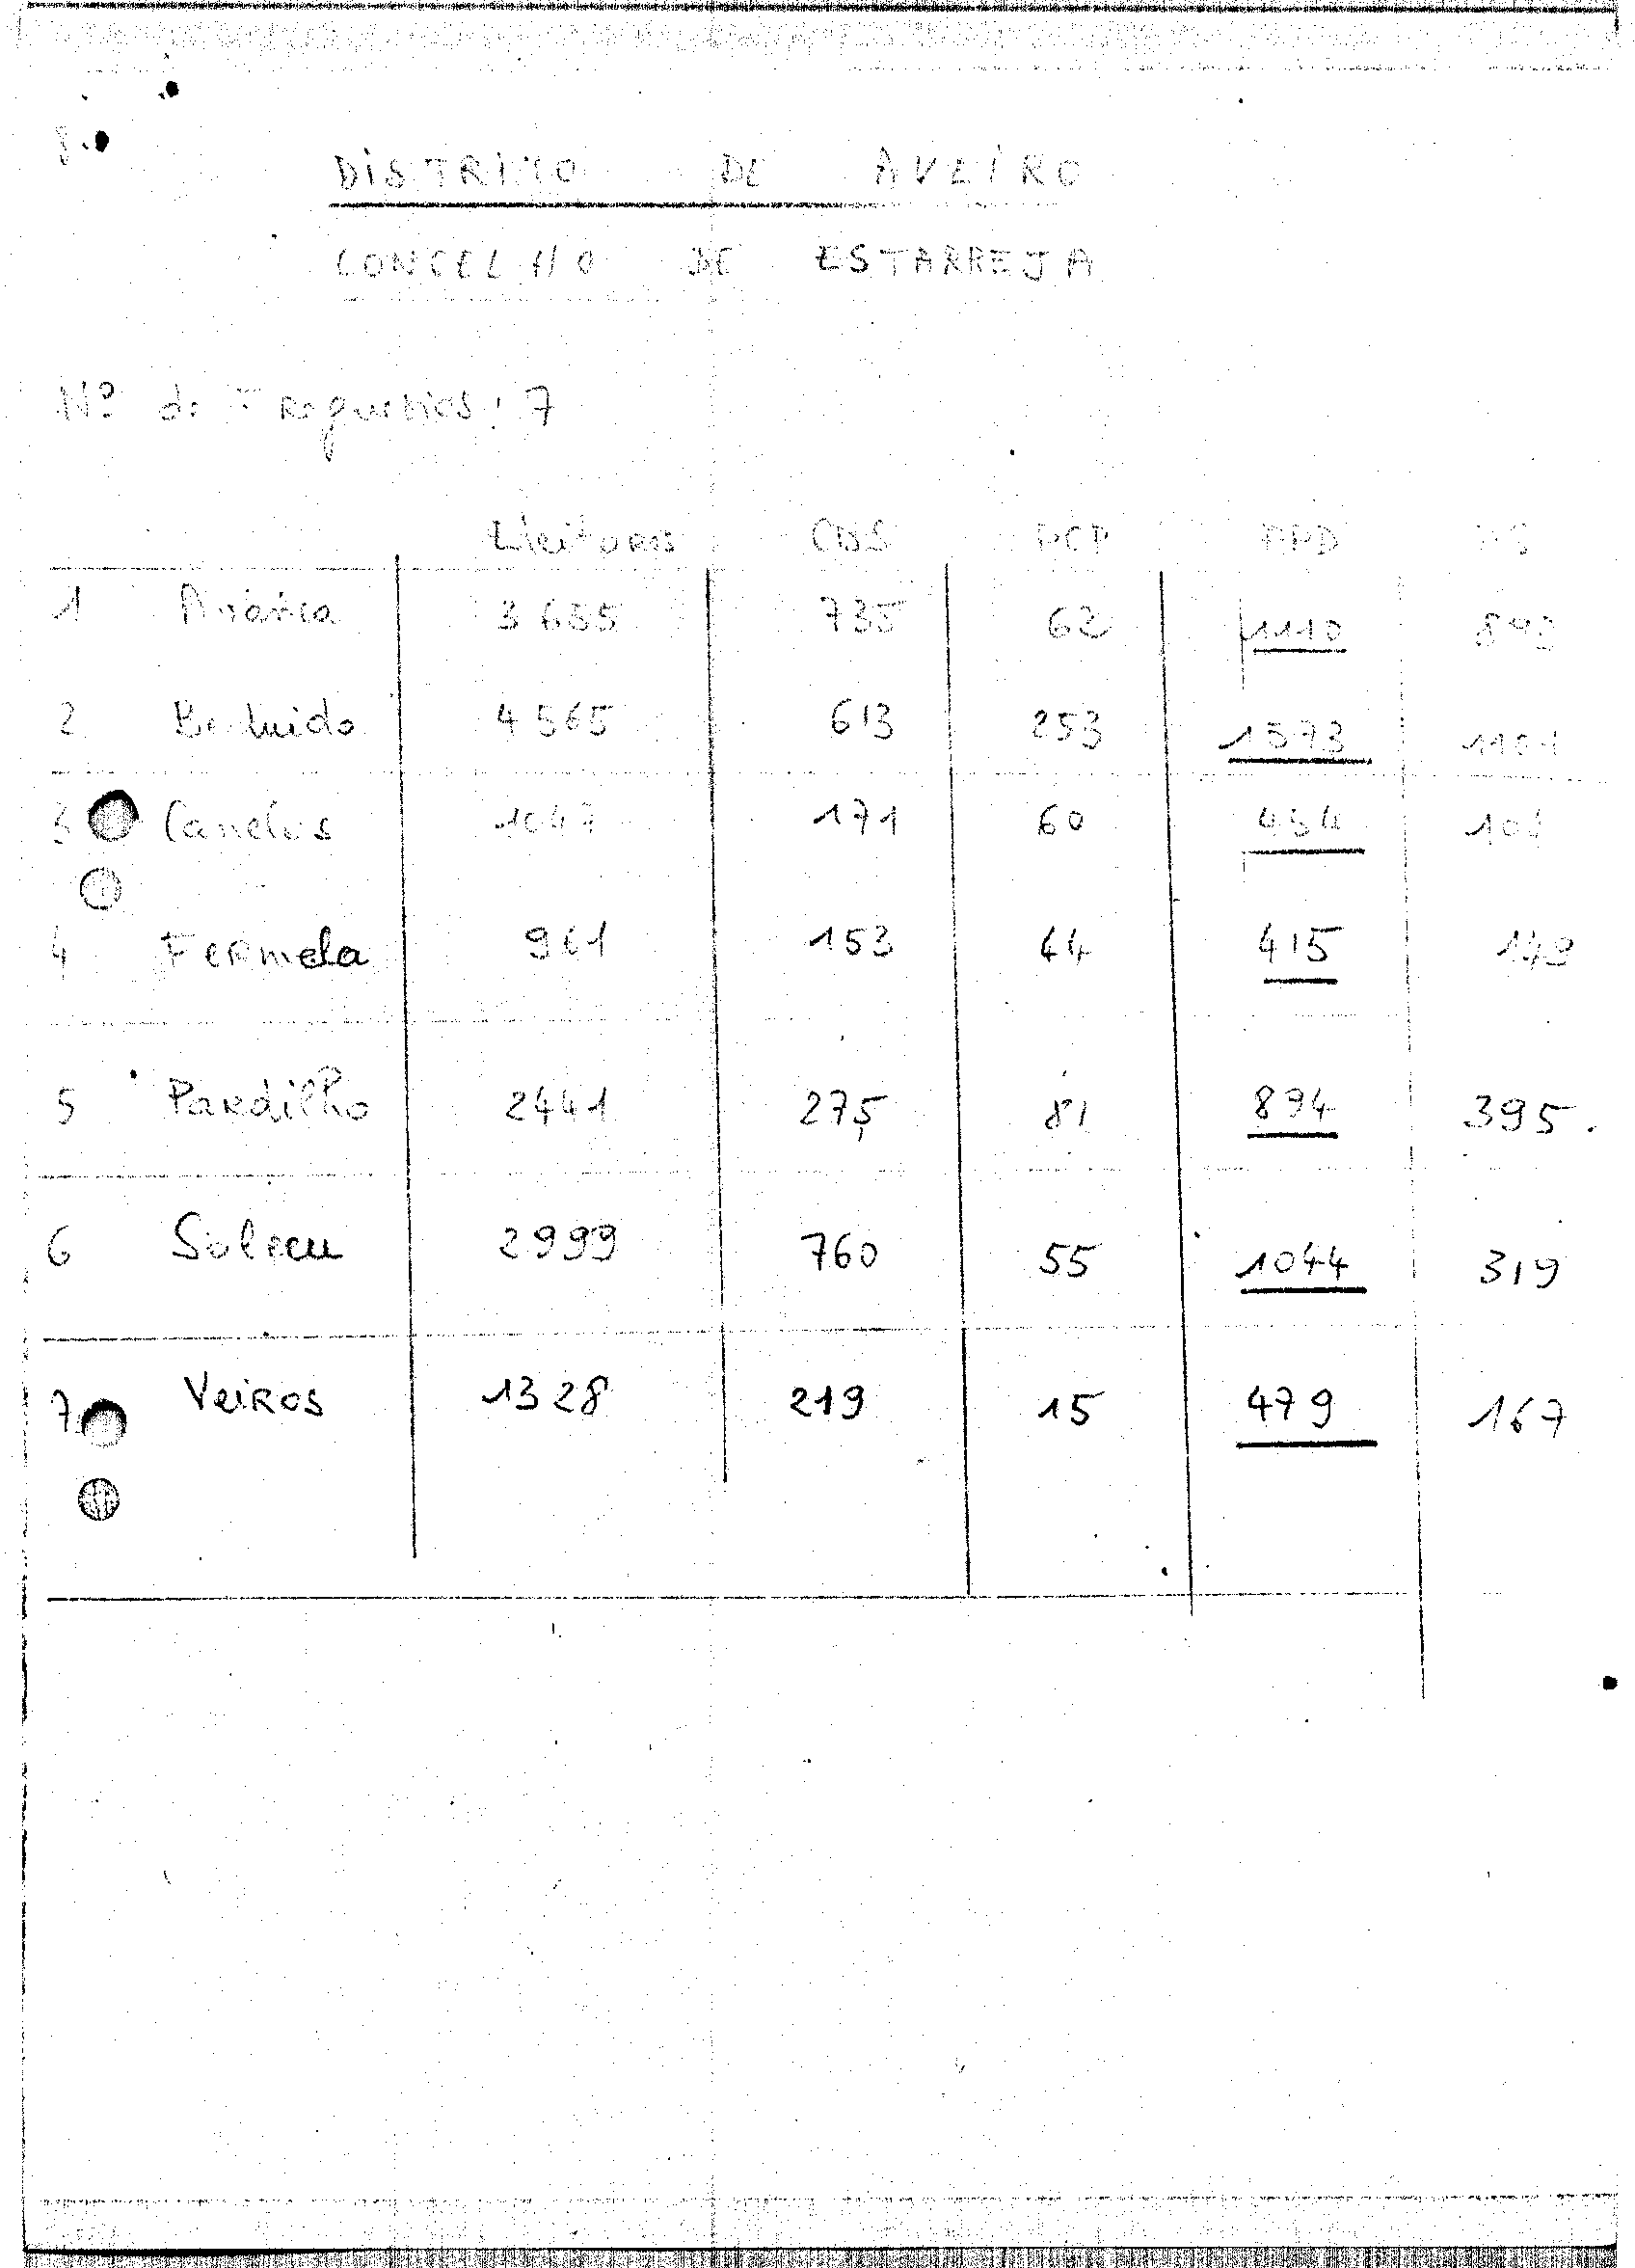 DISTRITO DE AVEIRO
CONCELHO DE ESTARREJA
Nº de Freguesias: 7
Eleitores CDS PCP PPD PS
1 Avanca 3 655 735 62 1110
2 Beduido 4 565 613 253 1573 1101
3 Canelas 1047 171 60 454
4 Fermela 961 153 44 415 149
5 Pardilho 2441 275 81 894 395.
6 Salreu 2999 760 55 1044 319
7 Veiros 1328 219 15 479 167